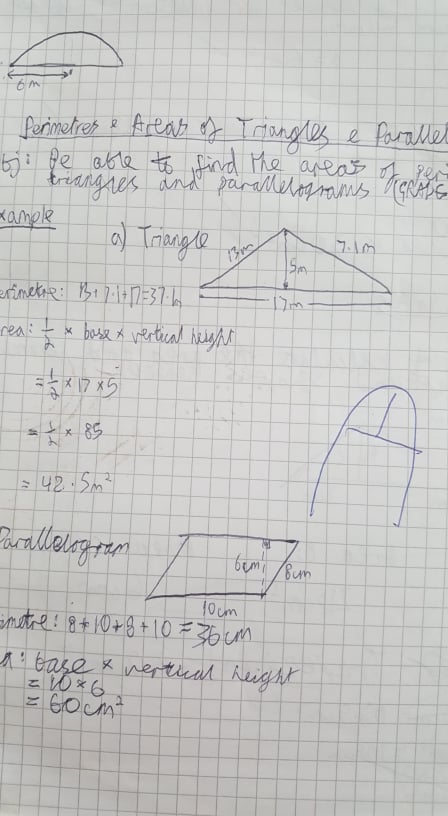 6m
Perimetres & Areas of Triangles & Parallel
bj: Be able to find the areas of per
triangles and parallelograms (GRADE
xample
a) Triangle
13m
7.1m
5m
17m
erimetre: 13+7.1+17=37.1m
rea: 1/2 × base × vertical height
= 1/2 × 17 × 5
= 1/2 × 85
= 42.5m²
Parallelogram
6cm
8cm
10cm
imetre: 8+10+8+10=36cm
a: base × vertical height
= 10×6
= 60cm²